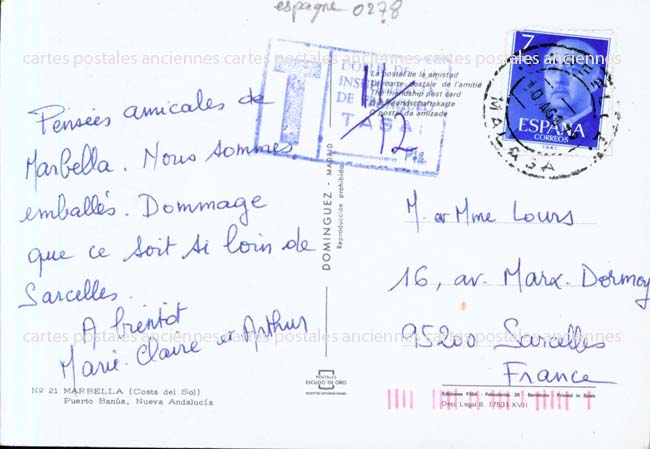 espagne 0278
cartes postales anciennes cartes postales anciennes cartes postales anciennes
7
ESPAÑA
CORREOS
T
TASA:
12 Pts.
La postal de la amistad
La carte postale de l'amitié
The friendship post card
Die Freundschaftskarte
O postal da amizade
Pensées amicales de
Marbella. Nous sommes
emballés. Dommage
que ce soit si loin de
Sarcelles.
A bientôt
Marie-Claire et Arthur
DOMINGUEZ - MADRID
Reproducción prohibida
M. et Mme Lours
16, av. Marx-Dormoy
95200 Sarcelles
France
cartes postales anciennes cartes postales anciennes cartes postales anciennes
POSTALES
ESCUDO DE ORO
Nº 21 MARBELLA (Costa del Sol)
Puerto Banús, Nueva Andalucía
Ediciones FISA - Palaudarias, 26 - Barcelona - Printed in Spain
Dep. Legal B. 17531-XVII